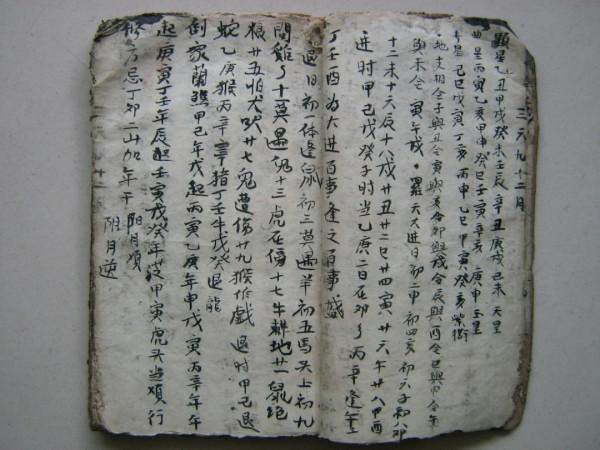 三六九十二月
顯星乙丑甲戌癸未壬辰 辛丑庚戌己未 天皇
曲星丙寅乙亥甲申癸巳壬寅辛亥 庚申玉皇
星己巳戊寅丁亥 丙申乙巳甲寅癸亥紫微
地支相合子與丑合寅與亥合卯與戌合辰與酉合巳與申合午
與未合 寅午戌 羅天大進日初二甲初四亥初六子初八卯
十二未十六辰十八戌廿丑廿二巳廿四寅廿六午廿八甲酉
进时甲己戊癸子时当乙庚二日在卯了丙辛逢午上
丁壬酉为大进百事逢之百事盛
退日初一体逢鼠初三莫遇羊初五馬头上初九
問雞了十莫遇兔十三虎在傍十七牛耕地廿一鼠绝
粮廿五怕犬吠廿七兔遭傷廿九猴作戲 退时甲己退
蛇乙庚猴丙辛寧猪丁壬牛戊癸退龍
倒家蘭煞甲己年戌起丙寅乙庚年申戊寅丙辛年午
起庚寅丁壬年辰起壬寅戊癸年甲寅虎头当順行
修方忌丁卯二山加年干 阳月順
阴月逆